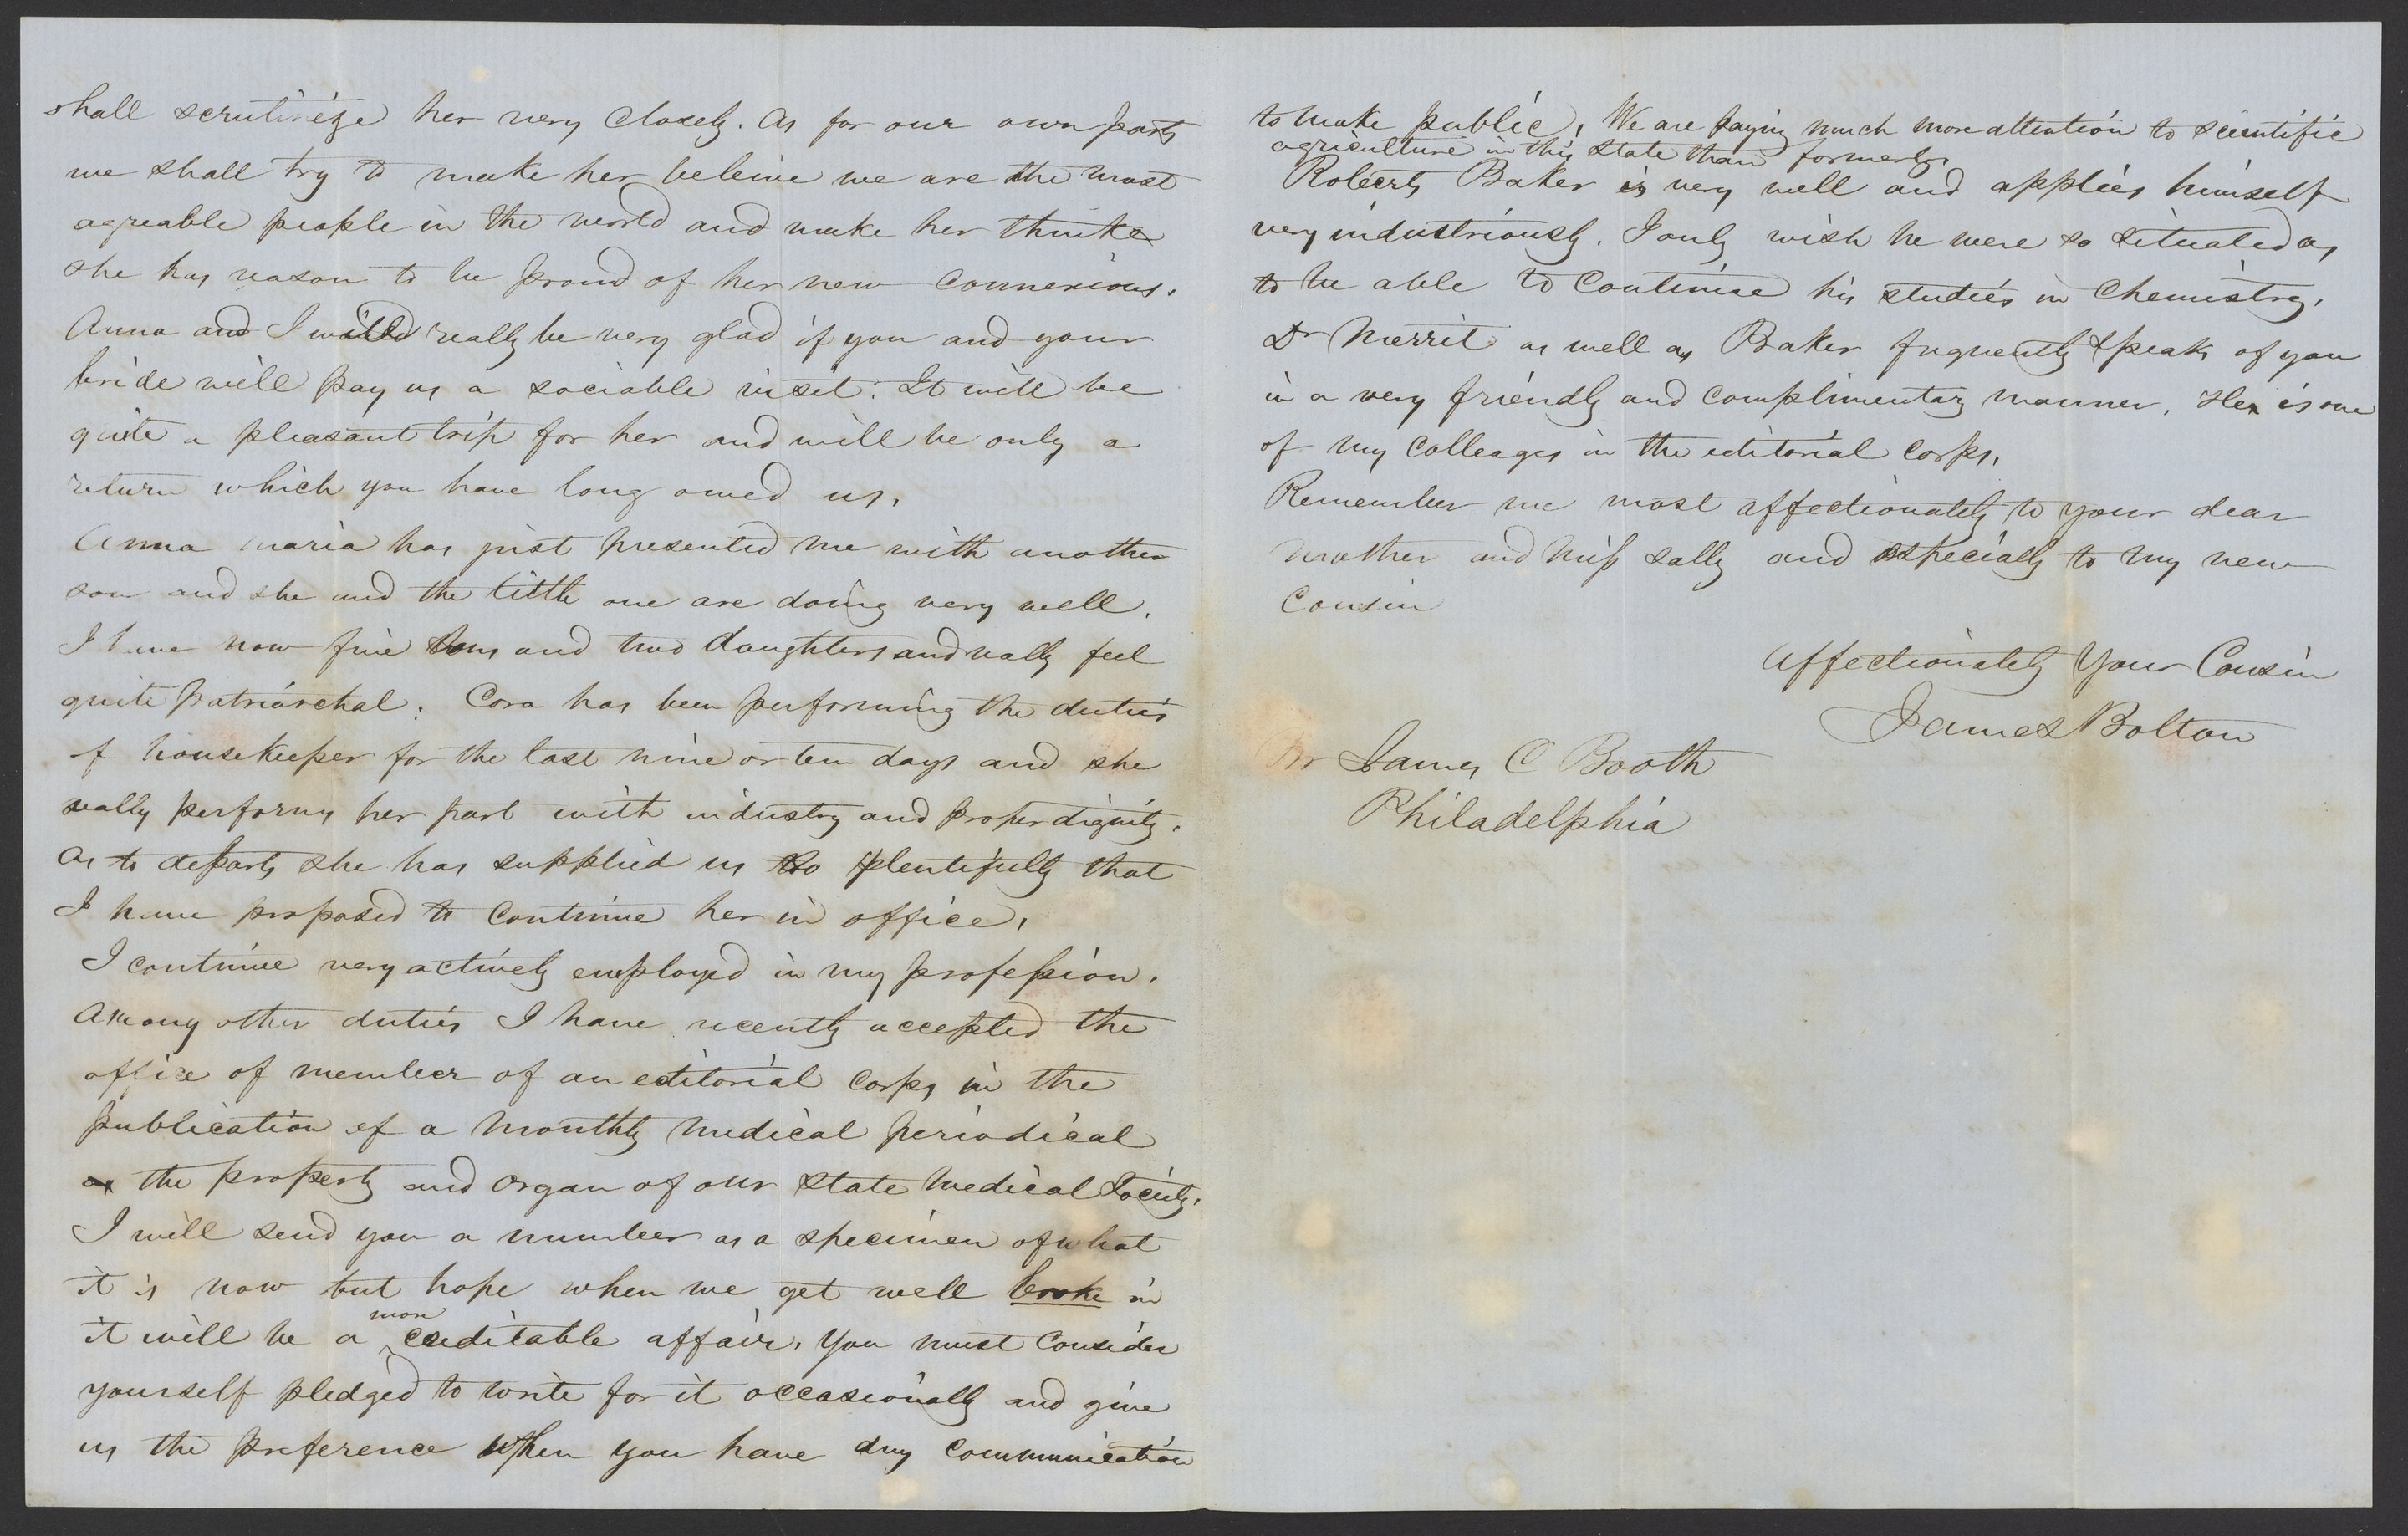 shall scrutinize her very closely. As for our own parts
we shall try to make her beleive we are the most
agreable people in the world and make her think
she has reason to be proud of her new connexions.
Anna and I would really be very glad if you and your
bride will pay us a sociable visit. It will be
quite a pleasant trip for her and will be only a
return which you have long owed us.
Anna maria has just presented me with another
son and she and the little one are doing very well.
I have now five sons and two daughters and really feel
quite patriarchal. Cora has been performing the duties
of housekeeper for the last nine or ten days and she
really performs her part with industry and proper dignity.
As to she has supplied us so plentifully that
I have proposed to continue her in office.
I continue very actively employed in my profession.
Among other duties I have recently accepted the
office of member of an editorial corps in the
publication of a monthly medical periodical
the property and organ of our State Medical Society.
I will send you a number as a specimen of what
it is now but hope when we get well broke in
it will be a more creditable affair. You must consider
yourself pledged to write for it occasionally and give
us the preference when you have any communication
to make public. We are paying much more attention to scientific
agriculture in this State than formerly.
Roberts Baker is very well and applies himself
very industriously. I only wish he were so situated as
to be able to continue his studies in Chemistry.
Dr Merrit as well as Baker frequently speaks of you
in a very friendly and complimentary manner. He is one
of my colleages in the editorial corps.
Remember me most affectionately to your dear
mother and Miss Sally and especially to my new
Cousin
Affectionately Your Cousin
James Bolton
Mr James C Booth
Philadelphia